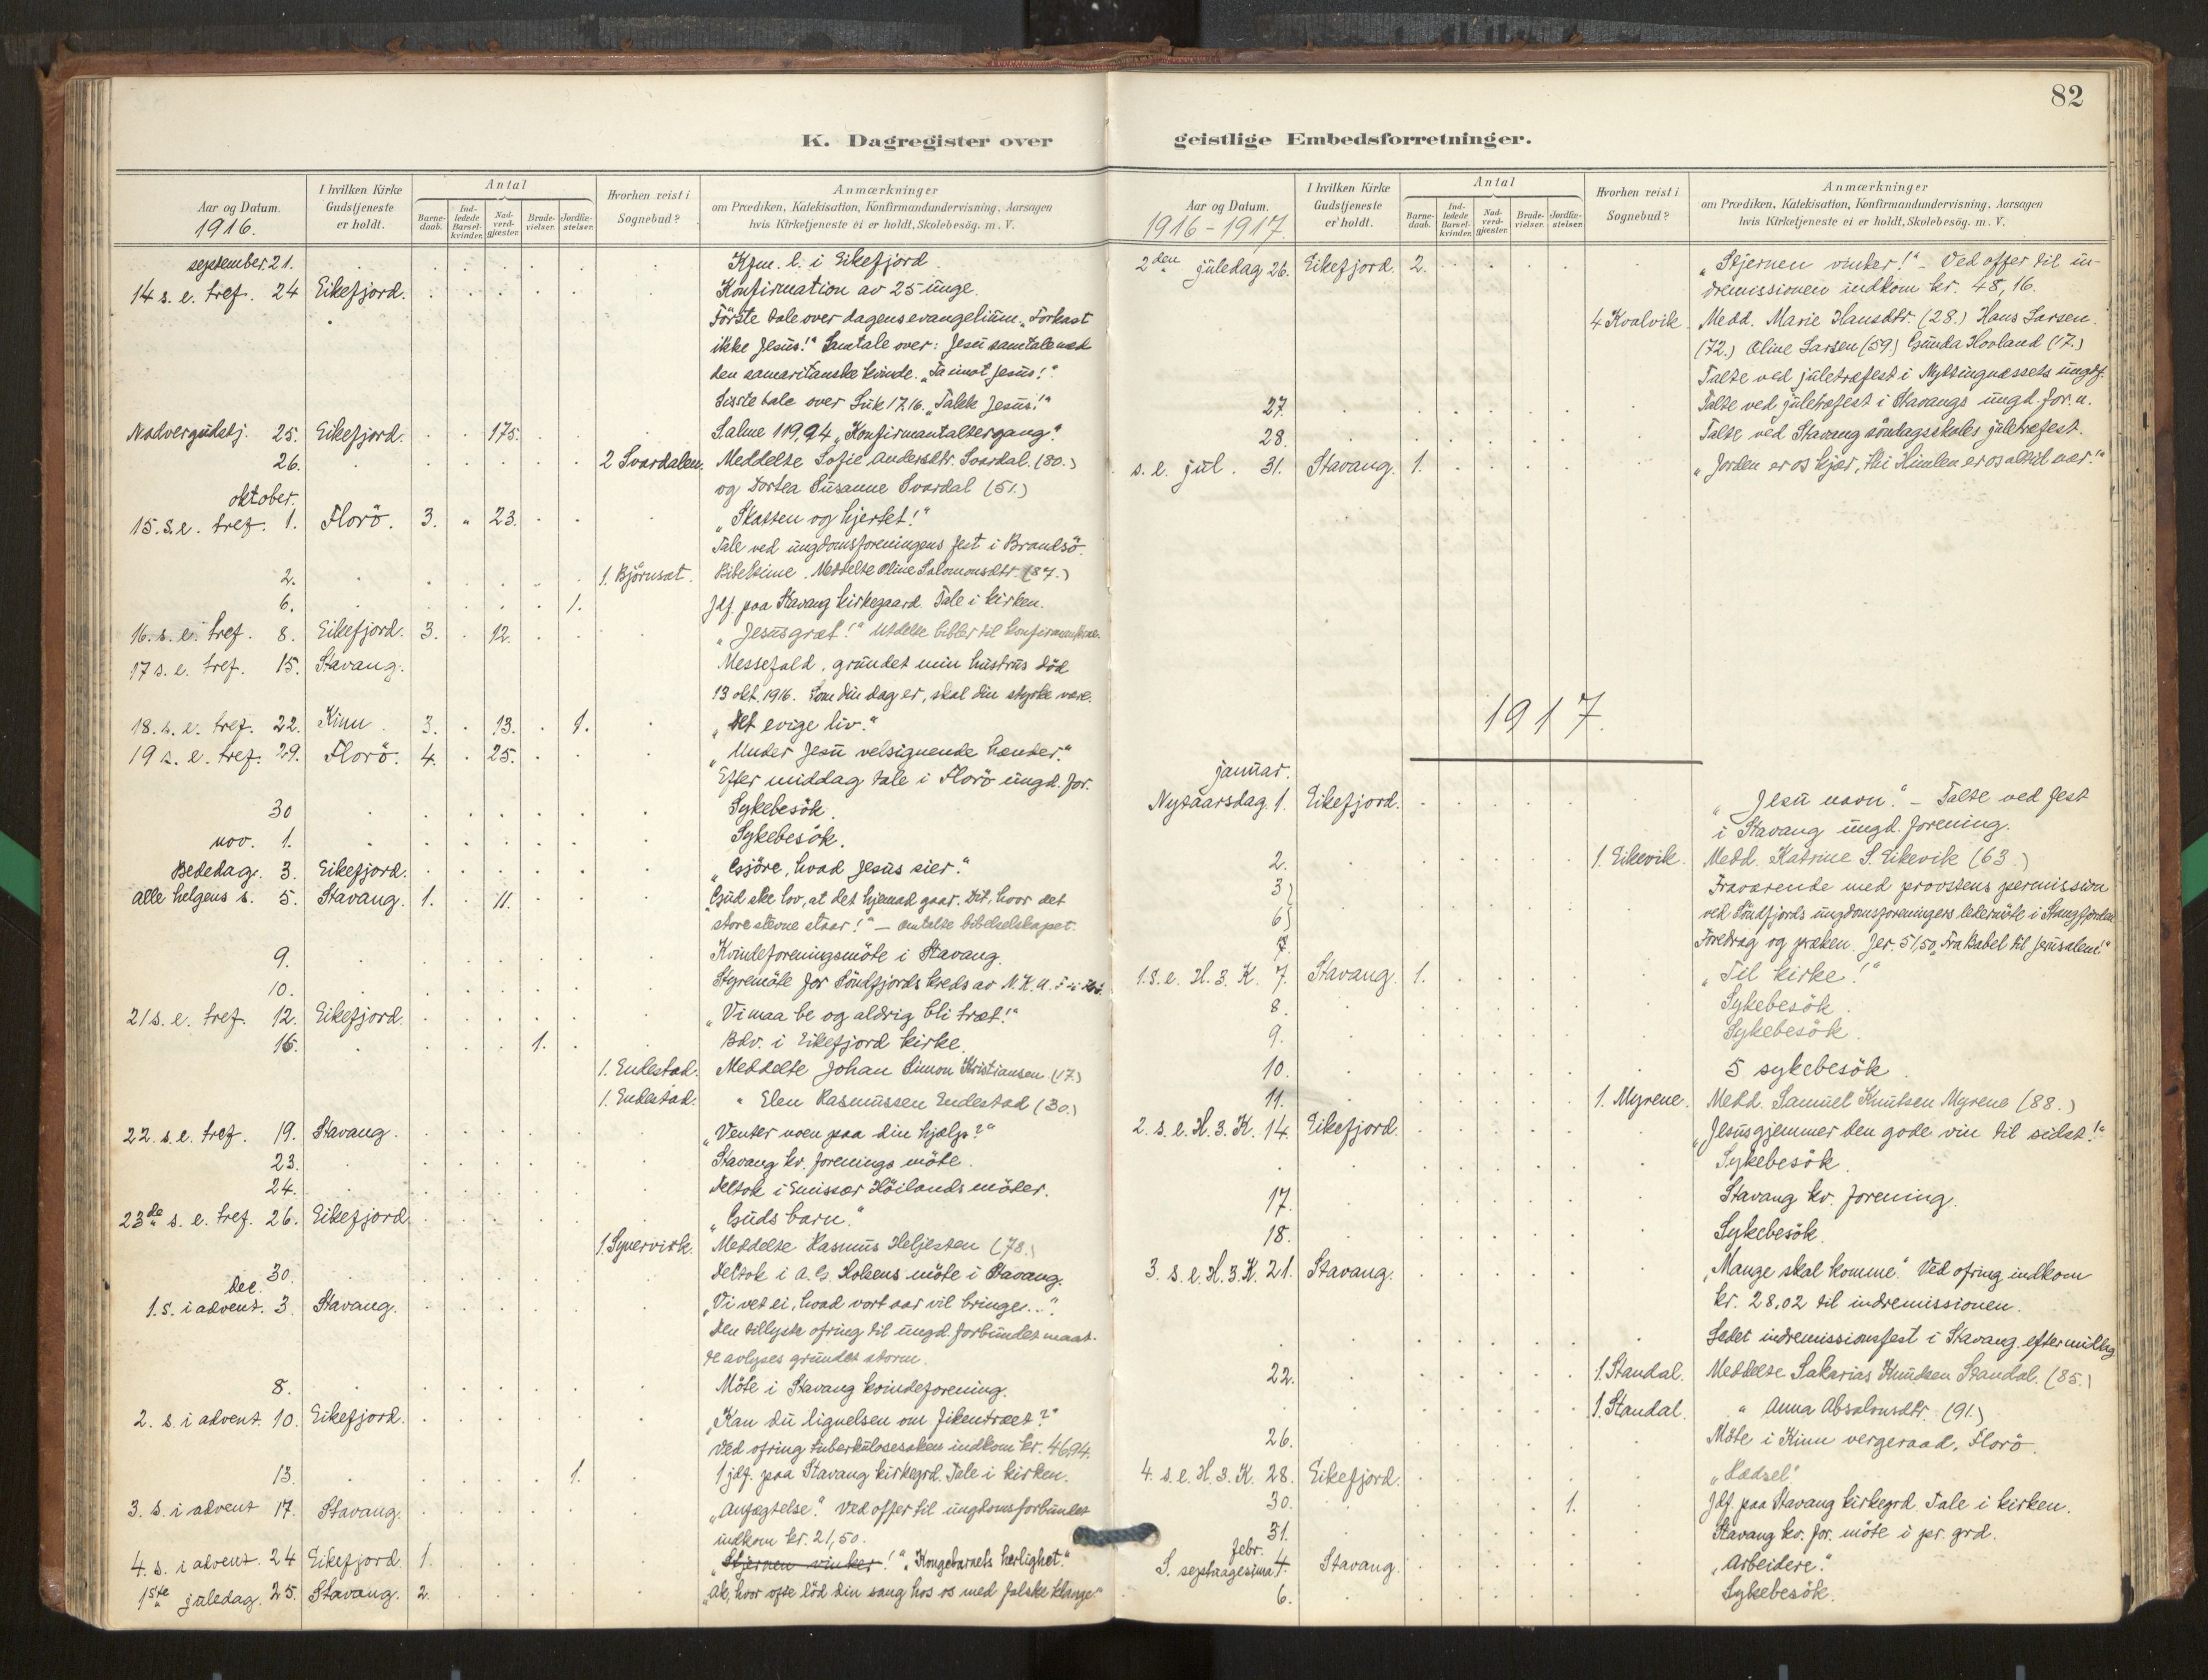 82
K. Dagregister over
geistlige Embedsforretninger.
Aar og Datum.
1916.
I hvilken Kirke Gudstjeneste er holdt.
Antal
Barne-daab.
Ind-ledede Barsel-kvinder.
Nad-verd-gjæster.
Brude-vielser.
Jordfæ-stelser.
Hvorhen reist i Sognebud?
Anmærkninger
om Prædiken, Katekisation, Konfirmandundervisning, Aarsagen
hvis Kirketjeneste ei er holdt, Skolebesøg. m. V.
september 21. Kfm. l. i Eikefjord
14 s. e. tref. 24 Eikefjord. Konfirmation av 25 unge.
Første tale over dagens evangelium. "Forkast
ikke Jesus!" Samtale over: Jesu samtale med
den samaritanske kvinde. "Ta imot Jesus!"
Sisste tale over Luk 17.16. "Takk Jesus!"
Nadvergudstj. 25. Eikefjord. 175. Salme 119,94 "Konfirmantaltergang".
26. 2 Svardalen. Meddelte Sofie Andersdtr. Svardal. (80.)
og Dortea Susanne Svardal (51.)
oktober.
15. s. e. tref. 1. Florö. 3. " 23. "Skatten og hjertet!"
Tale ved ungdomsforeningens fest i Brandsö.
2. 1. Björnset. Bibeltime. Meddelte Oline Salomonsdtr. (87.)
6. 1. Jdf. paa Stavang kirkegaard. Tale i kirken.
16. s. e. tref. 8. Eikefjord. 3. 12. "Jesus graat!" Utdelte bibler til konfirmantene.
17 s. e. tref. 15. Stavang. Messefald, grundet min hustrus död
13 okt. 1916. Som din dag er, skal din styrke være.
18. s. e. tref. 22. Kinn. 3. 13. 1. "Det evige liv."
19 s. e. tref. 29. Florö. 4. 25. "Under Jesu velsignende hænder."
Efter middag tale i Florö ungd. for.
30 Sykebesök.
nov. 1. Sykebesök.
Bededag. 3. Eikefjord. "Gjöre, hvad Jesus sier."
Alle helgens s. 5. Stavang. 1. 11. "Gud ske lov, at det hjemad gaar. Dit, hvor det
store stevne staar!" – Omtalte bibelselskapet.
9. Kvindeforeningsmöte i Stavang.
10. Styremöte for Söndfjords kreds av N. K. U. F.
21 s. e. tref. 12. Eikefjord. "Vi maa be og aldrig bli træt!"
16. 1. Bdv. i Eikefjord kirke.
1. Endestad. Meddelte Johan Simon Kristiansen (17.)
1. Endestad. " Elen Rasmussen Endestad (30.)
22. s. e. tref. 19. Stavang. "Venter noen paa din hjælp?"
23. Stavang kv. forenings möte.
24. Deltok i Emissær Höilands möter.
23de s. e. tref. 26. Eikefjord "Guds barn."
1. Synervik. Meddelte Rasmus Heljesten (78.)
30. Deltok i A. G. Holsens möte i Stavang.
dec.
1. s. i advent. 3. Stavang. "Vi vet ei, hvad vort aar vil bringe..."
Den tillyste ofring til ungd. forbundet maat-
te avlyses grundet storm.
8. Möte i Stavang kvindeforening.
2. s. i advent. 10. Eikefjord. "Kan du lignelsen om fikentræet?"
Ved ofring tuberkulosesaken indkom kr. 46,94.
13. 1. 1 jdf. paa Stavang kirkegrd. Tale i kirken.
3. s. i advent 17. Stavang. "Anfægtelse." Ved offer til ungdomsforbundet
indkom kr. 21,50.
4. s. i advent. 24 Eikefjord 1. "Stjernen vinker!" "Kongebarnets herlighet."
1ste juledag. 25. Stavang. 2. "Ak, hvor ofte löd din sang hos os med falske klange"
Aar og Datum.
1916 – 1917.
I hvilken Kirke Gudstjeneste er holdt.
Antal
Barne-daab.
Ind-ledede Barsel-kvinder.
Nad-verd-gjæster.
Brude-vielser.
Jordfæ-stelser.
Hvorhen reist i Sognebud?
Anmærkninger
om Prædiken, Katekisation, Konfirmandundervisning, Aarsagen
hvis Kirketjeneste ei er holdt, Skolebesøg. m. V.
2den juledag 26. Eikefjord. 2. "Stjernen vinker!" – Ved offer til in-
dremissionen indkom kr. 48,16.
4 Kvalvik. Medd. Marie Hansdtr. (28.) Hans Larsen
(72.) Oline Larsen (59) Gunda Hovland (17.)
Talte ved juletræfest i Nyttingnæssets ungdf.
27. Talte ved juletræfest i Stavangs ungd. for. u.
28. Talte ved Stavang söndagsskoles juletræfest.
s. e. jul. 31. Stavang. 1. "Jorden er os kjær, thi Himlen er os altid nær."
1917.
januar.
Nytaarsdag. 1. Eikefjord. "Jesu navn." – Talte ved fest
i Stavang ungd. forening.
2. 1. Eikevik. Medd. Katrine S. Eikevik (63.)
3) Fraværende med provstens permission
6) ved Söndfjords ungdomsforeningers ledermöte i Stangfjorden
7. Foredrag og præken. Jer. 51,50 "Fra Babel til Jerusalem!"
1. s. e. H. 3. K. 7. Stavang 1. "Til kirke!"
8. Sykebesök.
9. Sykebesök.
10. 5 sykebesök.
11. 1. Myrene. Medd. Samuel Knutsen Myrene (88.)
2. s. e. H. 3. K. 14. Eikefjord. "Jesus gjemmer den gode vin til sidst!"
Sykebesök.
17. Stavang kv. forening.
18. Sykebesök.
3. s. e. H. 3. K. 21. Stavang. "Mange skal komme" Ved ofring indkom
kr. 28,02 til indremissionen.
Ledet indremissionsfest i Stavang eftermiddag
22. 1. Standal. Meddelte Sakarias Knudsen Standal. (85.)
1. Standal. " Anna Absalonsdtr. (91.)
26. Möte i Kinn vergeraad, Florö.
4. s. e. H. 3. K. 28. Eikefjord. "Rædsel"
30. 1. Jdf. paa Stavang kirkegrd. Tale i kirken.
31. Stavang kv. for. möte i pr. grd.
febr.
S. septuagesima 4. Stavang. "Arbeidere."
6. Sykebesök.